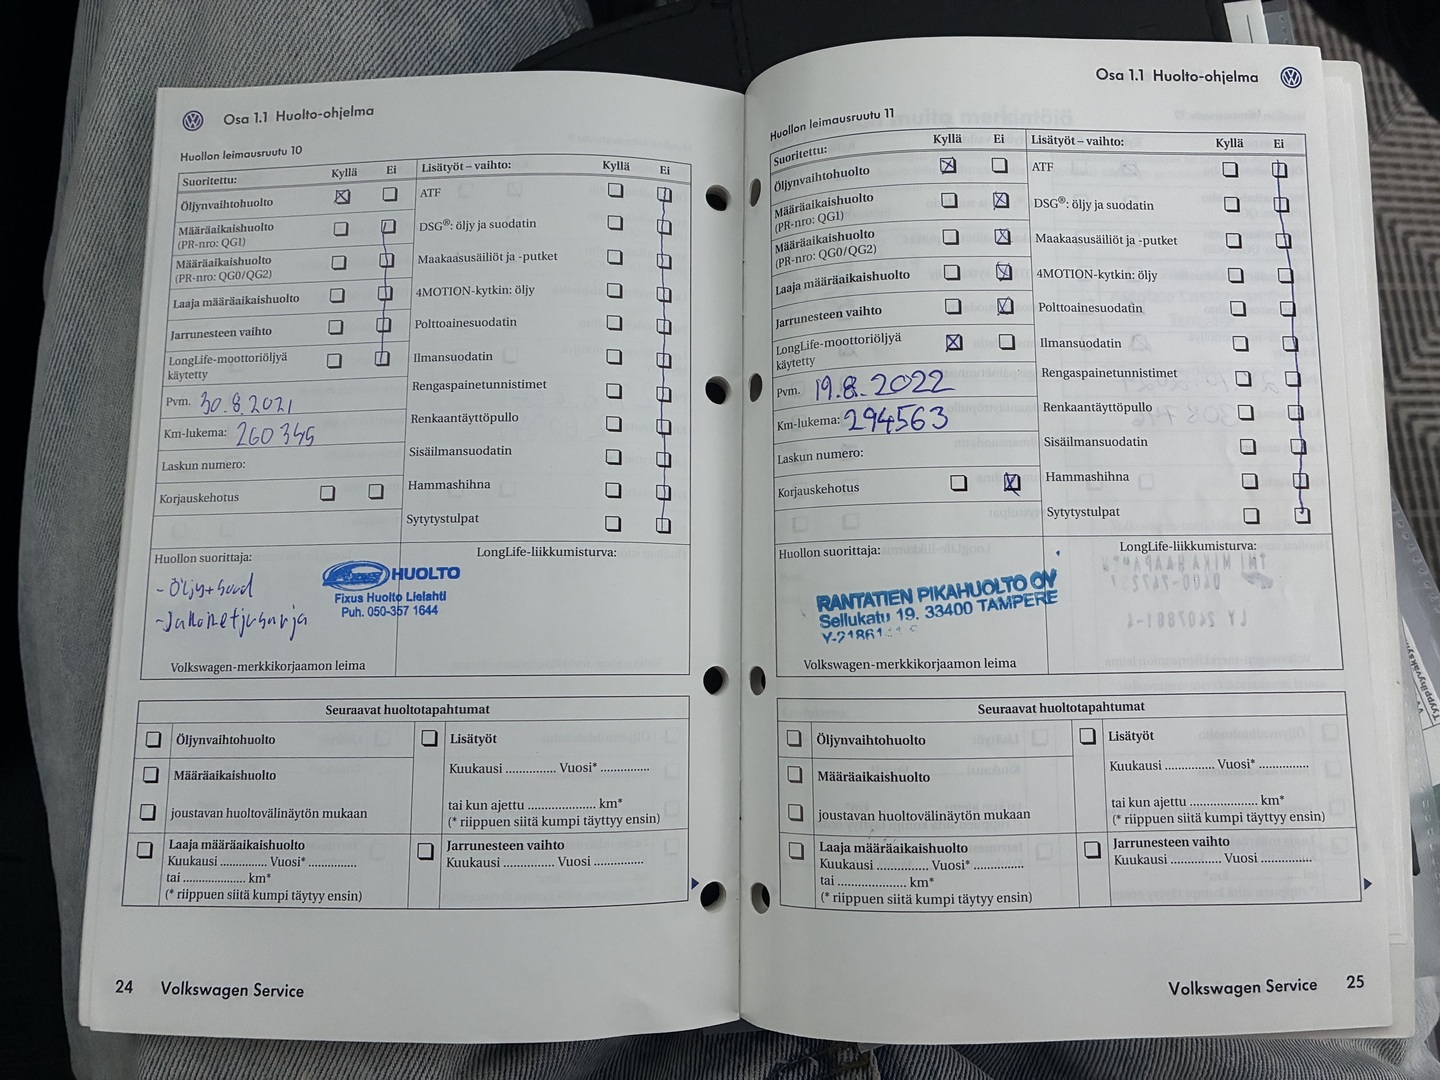 Osa 1.1 Huolto-ohjelma
Huollon leimausruutu 10
Suoritettu: Kyllä Ei
Öljynvaihtohuolto
Määräaikaishuolto
(PR-nro: QG1)
Määräaikaishuolto
(PR-nro: QG0/QG2)
Laaja määräaikaishuolto
Jarrunesteen vaihto
LongLife-moottoriöljyä
käytetty
Pvm. 30.8.2021
Km-lukema: 260 345
Laskun numero:
Korjauskehotus
Lisätyöt – vaihto: Kyllä Ei
ATF
DSG®: öljy ja suodatin
Maakaasusäiliöt ja -putket
4MOTION-kytkin: öljy
Polttoainesuodatin
Ilmansuodatin
Rengaspainetunnistimet
Renkaantäyttöpullo
Sisäilmansuodatin
Hammashihna
Sytytystulpat
Huollon suorittaja:
- Öljy+suod
HUOLTO
Fixus Huolto Lielahti
Puh. 050-357 1644
Volkswagen-merkkikorjaamon leima
LongLife-liikkumisturva:
Seuraavat huoltotapahtumat
Öljynvaihtohuolto
Määräaikaishuolto
joustavan huoltovälinäytön mukaan
Laaja määräaikaishuolto
Kuukausi .............. Vuosi* ..............
tai .................... km*
(* riippuen siitä kumpi täytyy ensin)
Lisätyöt
Kuukausi ............... Vuosi* ..............
tai kun ajettu .................... km*
(* riippuen siitä kumpi täyttyy ensin)
Jarrunesteen vaihto
Kuukausi ............... Vuosi ..............
24 Volkswagen Service
Osa 1.1 Huolto-ohjelma
Huollon leimausruutu 11
Suoritettu: Kyllä Ei
Öljynvaihtohuolto
Määräaikaishuolto
(PR-nro: QG1)
Määräaikaishuolto
(PR-nro: QG0/QG2)
Laaja määräaikaishuolto
Jarrunesteen vaihto
LongLife-moottoriöljyä
käytetty
Pvm. 19.8.2022
Km-lukema: 294563
Laskun numero:
Korjauskehotus
Lisätyöt – vaihto: Kyllä Ei
ATF
DSG®: öljy ja suodatin
Maakaasusäiliöt ja -putket
4MOTION-kytkin: öljy
Polttoainesuodatin
Ilmansuodatin
Rengaspainetunnistimet
Renkaantäyttöpullo
Sisäilmansuodatin
Hammashihna
Sytytystulpat
Huollon suorittaja:
RANTATIEN PIKAHUOLTO OY
Sellukatu 19. 33400 TAMPERE
Volkswagen-merkkikorjaamon leima
LongLife-liikkumisturva:
Seuraavat huoltotapahtumat
Öljynvaihtohuolto
Määräaikaishuolto
joustavan huoltovälinäytön mukaan
Laaja määräaikaishuolto
Kuukausi ............... Vuosi* ..............
tai .................... km*
(* riippuen siitä kumpi täytyy ensin)
Lisätyöt
Kuukausi ............... Vuosi* ..............
tai kun ajettu .................... km*
(* riippuen siitä kumpi täyttyy ensin)
Jarrunesteen vaihto
Kuukausi ............... Vuosi ..............
Volkswagen Service 25